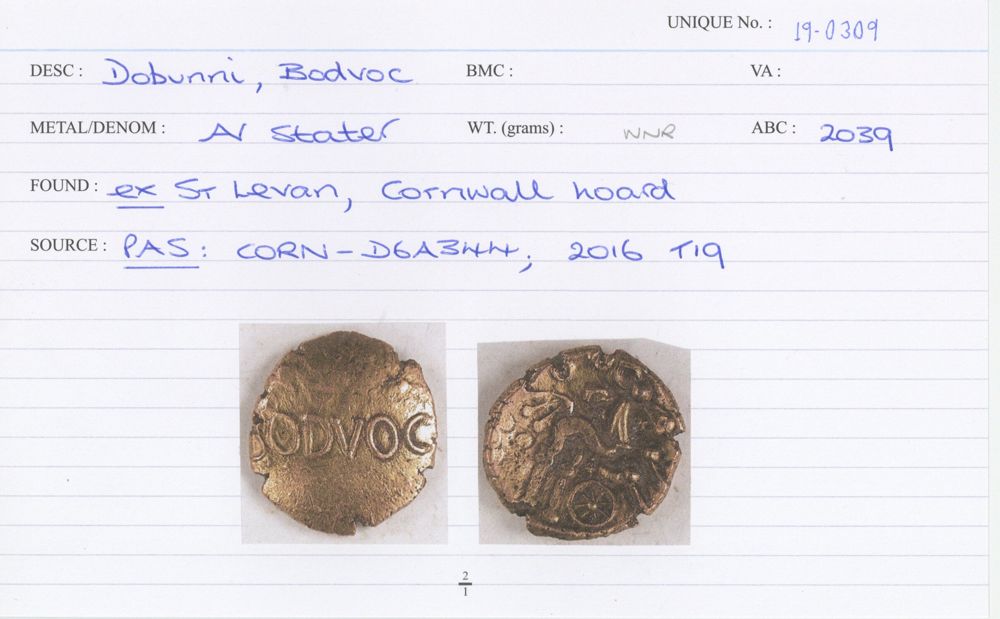 UNIQUE No. : 19-0309
DESC : Dobunni, Bodvoc BMC : VA :
METAL/DENOM : AV Stater WT. (grams) : WNR ABC : 2039
FOUND : ex St Levan, Cornwall hoard
SOURCE : PAS : CORN-D6A344; 2016 T19
BODVOC
2
1